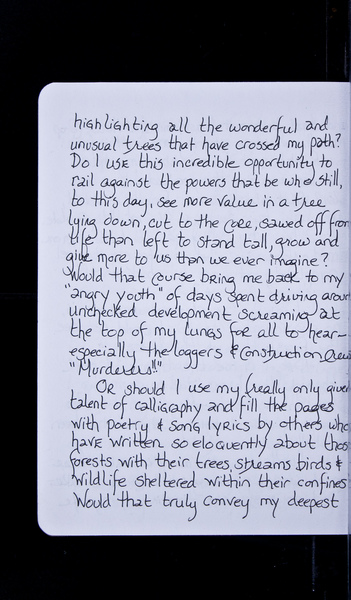 highlighting all the wonderful and
unusual trees that have crossed my path?
Do I use this incredible opportunity to
rail against the powers that be who still,
to this day, see more value in a tree
lying down, cut to the core, sawed off from
life than left to stand tall, grow and
give more to us than we ever imagine?
Would that course bring me back to my
"angry youth" of days spent driving around
unchecked development screaming at
the top of my lungs for all to hear-
especially the loggers & construction crews
"Murderers!"
Or should I use my (really only given
talent of calligraphy and fill the pages
with poetry & song lyrics by others who
have written so eloquently about those
forests with their trees, streams birds &
wildlife sheltered within their confines
Would that truly convey my deepest